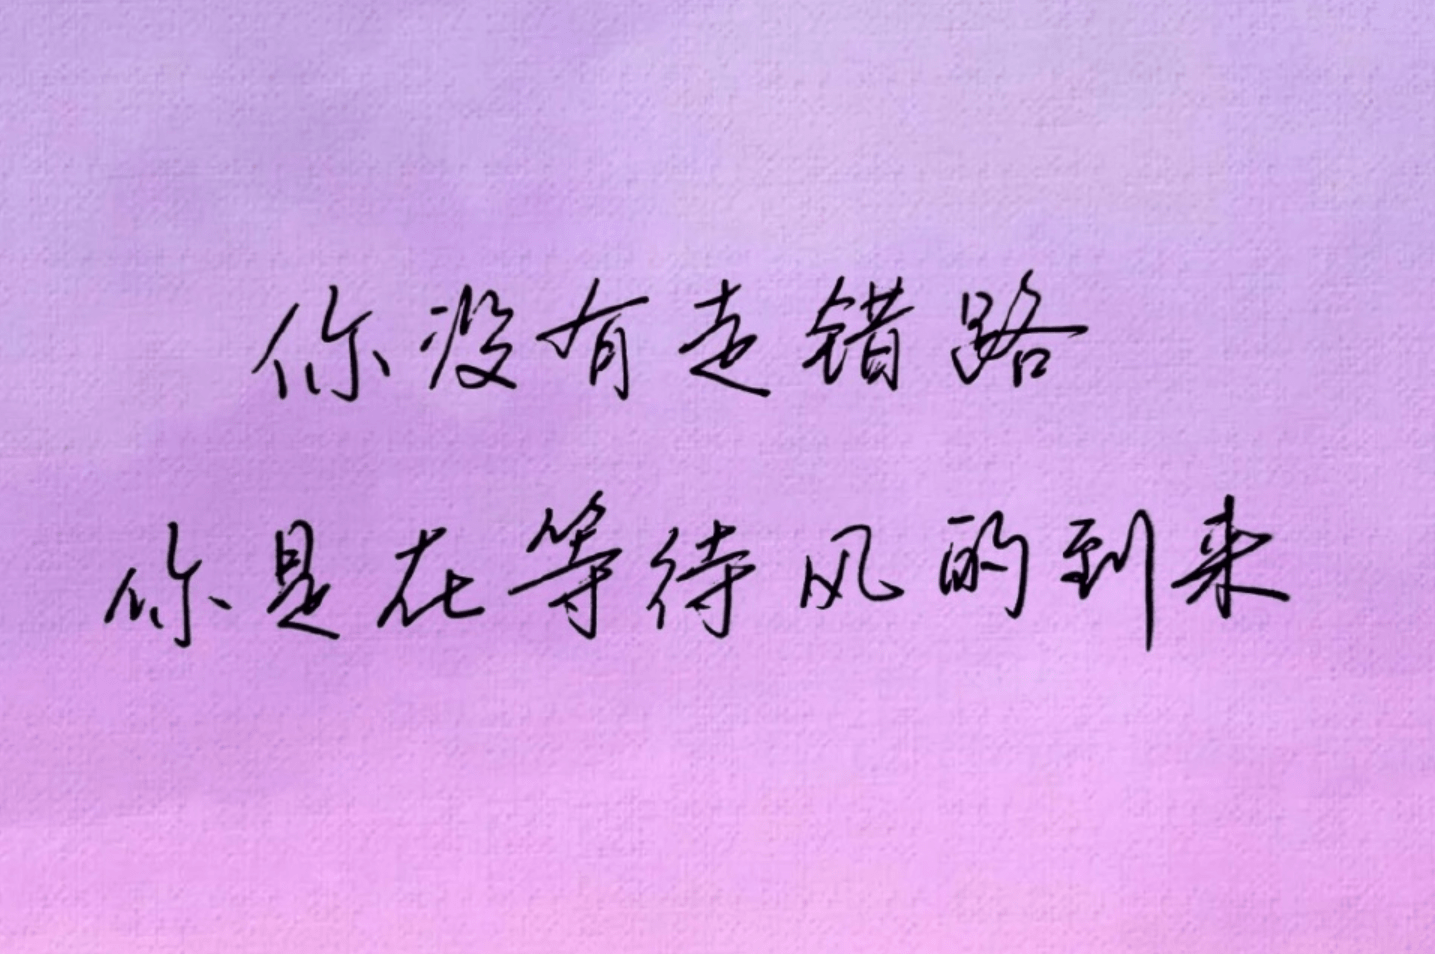 你没有走错路
你是在等待风的到来